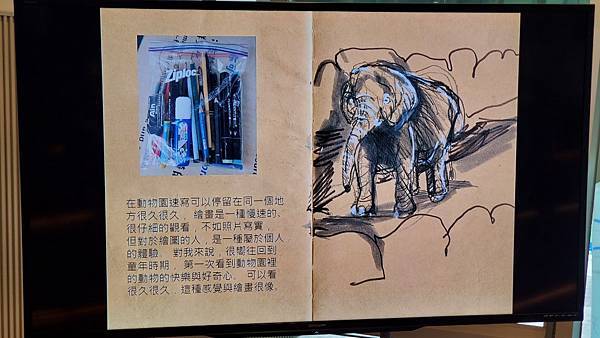 Ziploc
在動物園速寫可以停留在同一個地
方很久很久，繪畫是一種慢速的、
很仔細的觀看，不如照片寫實，
但對於繪圖的人，是一種屬於個人
的體驗。 對我來說，很嚮往回到
童年時期，第一次看到動物園裡
的動物的快樂與好奇心。 可以看
很久很久，這種感覺與繪畫很像。